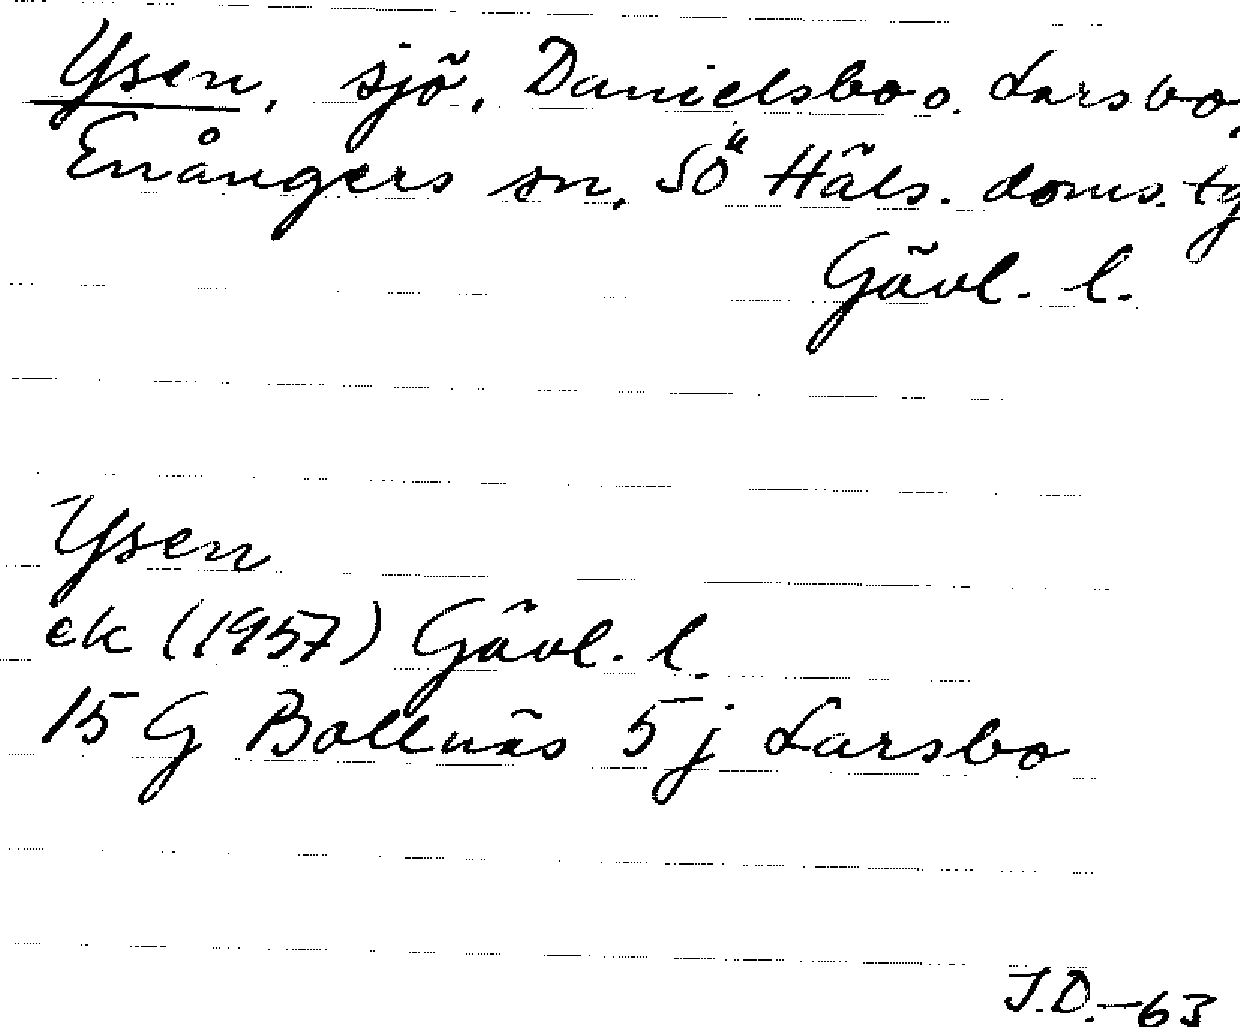 Ysen, sjö, Danielsbo o. Larsbo,
Enångers sn, SÖ Häls. doms. tg
Gävl. l.
Ysen
ek (1957) Gävl. l.
15 G Bollnäs 5 j Larsbo
J.D.-63